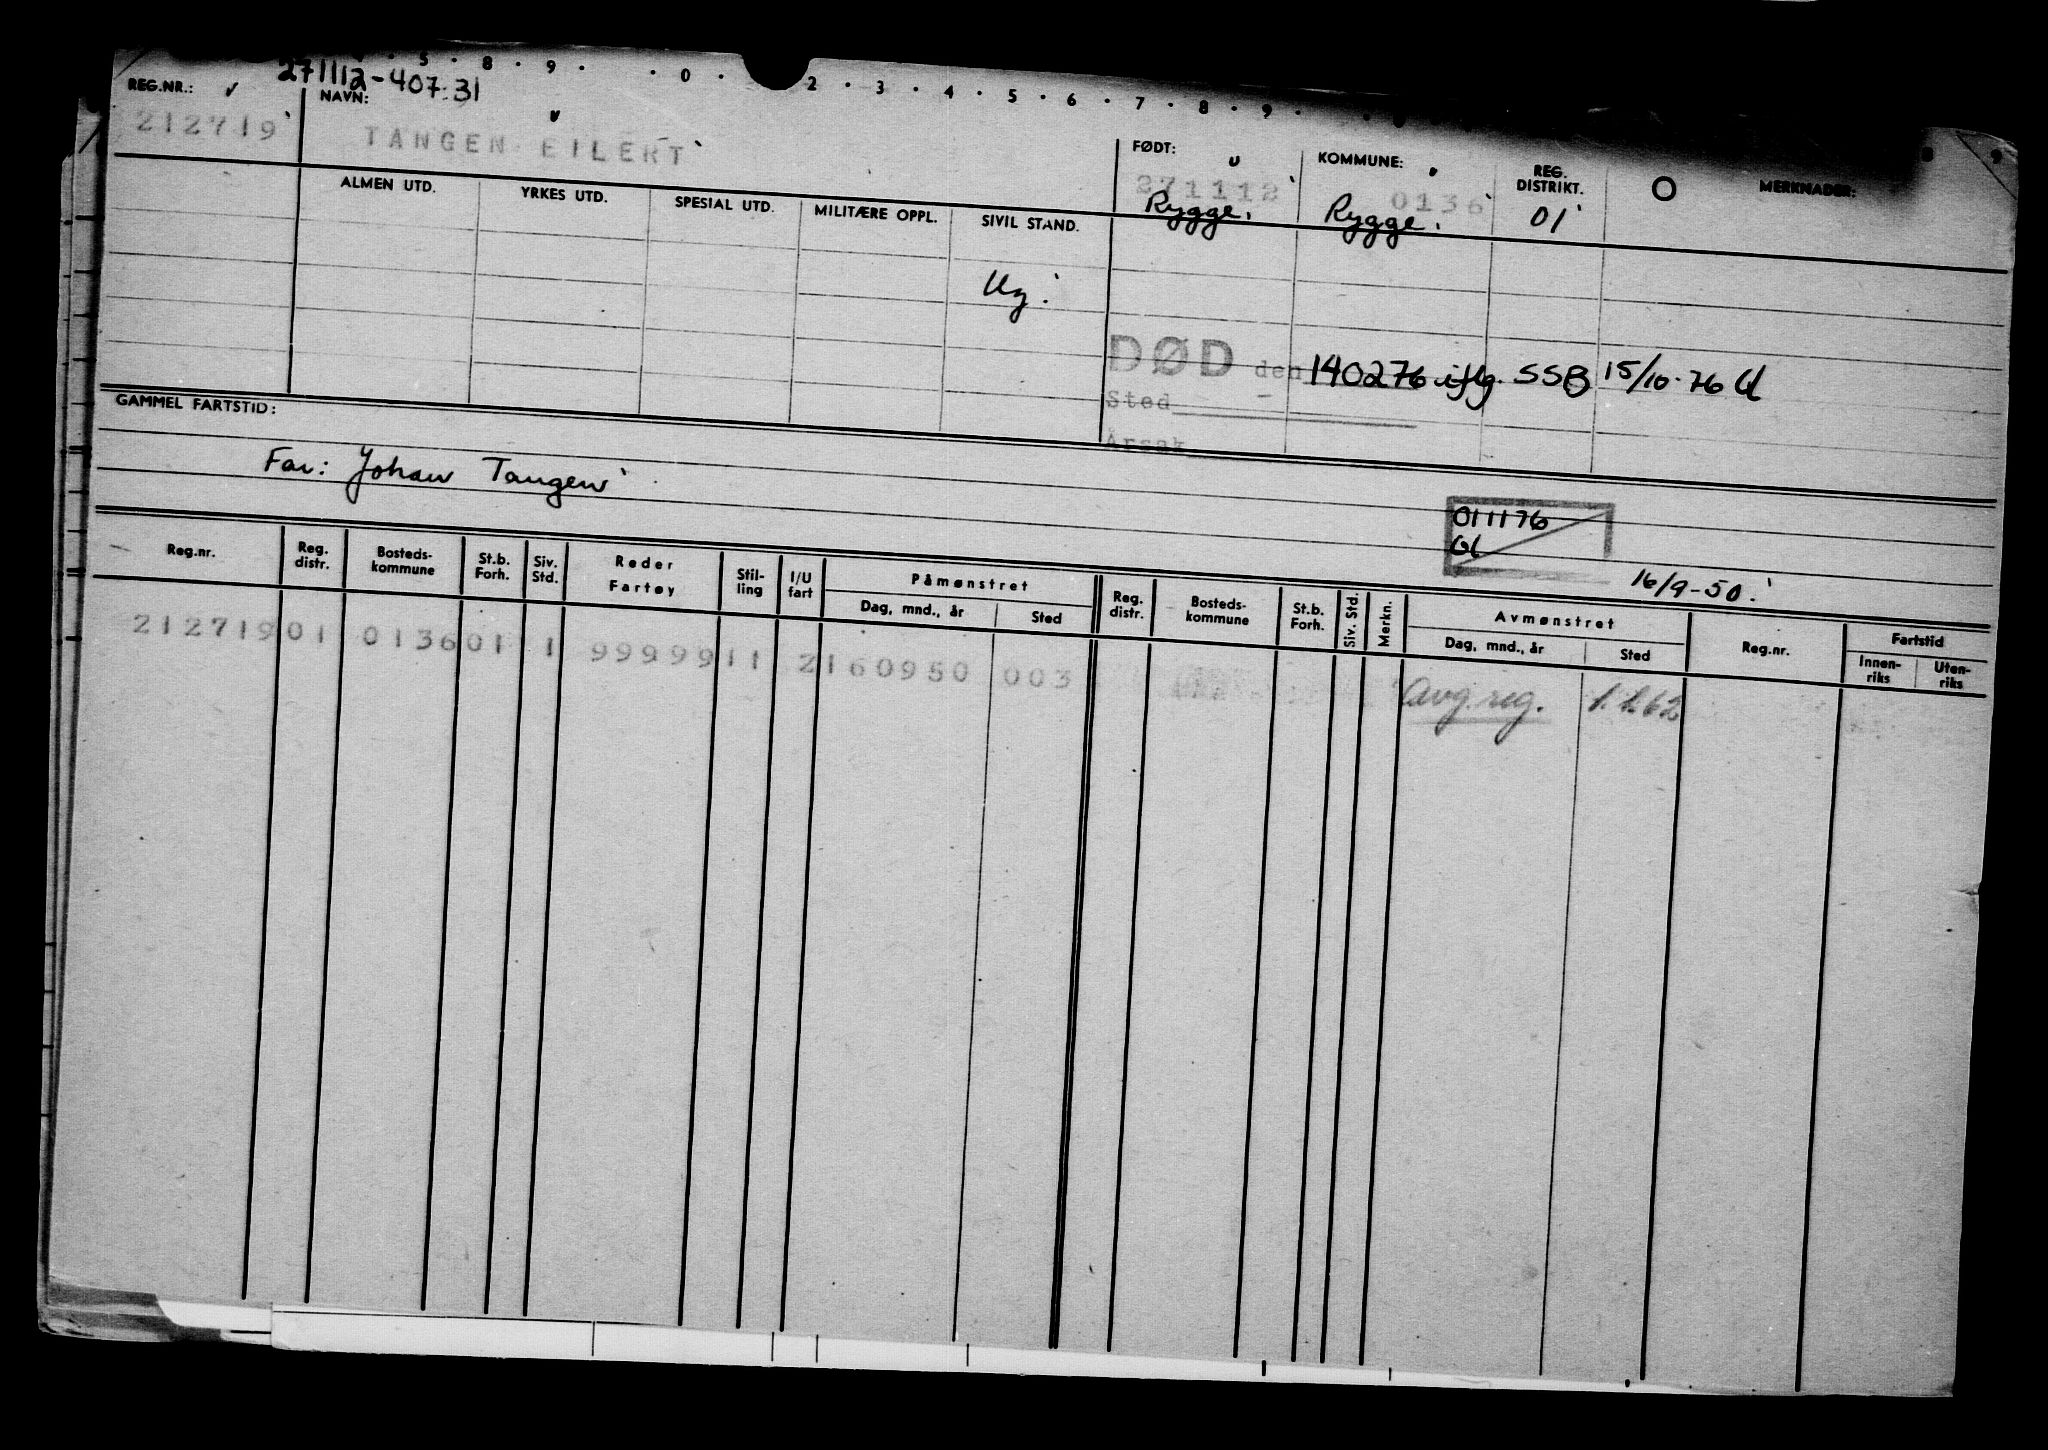 5 8 9 0 2 3 4 5 6 7 8 9
271112-407.31
REG.NR.: NAVN: FØDT: KOMMUNE: REG. DISTRIKT. MERKNADER:
212719 TANGEN EILERT 271112 0136
Rygge. Rygge. 01
ALMEN UTD. YRKES UTD. SPESIAL UTD. MILITÆRE OPPL. SIVIL STAND.
Ug.
DØD den 140276 iflg. SSB 15/10-76 Gl
Sted
Årsak
GAMMEL FARTSTID:
Far: Johan Tangen
011176
Gl
16/9-50.
Reg.nr. Reg. distr. Bosteds-kommune St.b. Forh. Siv. Std. Reder Fartøy Stil-ling I/U fart Påmønstret Dag, mnd., år Sted Reg. distr. Bosteds-kommune St.b. Forh. Siv. Std. Merkn. Avmønstret Dag, mnd., år Sted Reg.nr. Fartstid Innen-riks Uten-riks
212719 01 0136 01 1 99999 11 2 160950 003 Avg. reg. 1.1.62